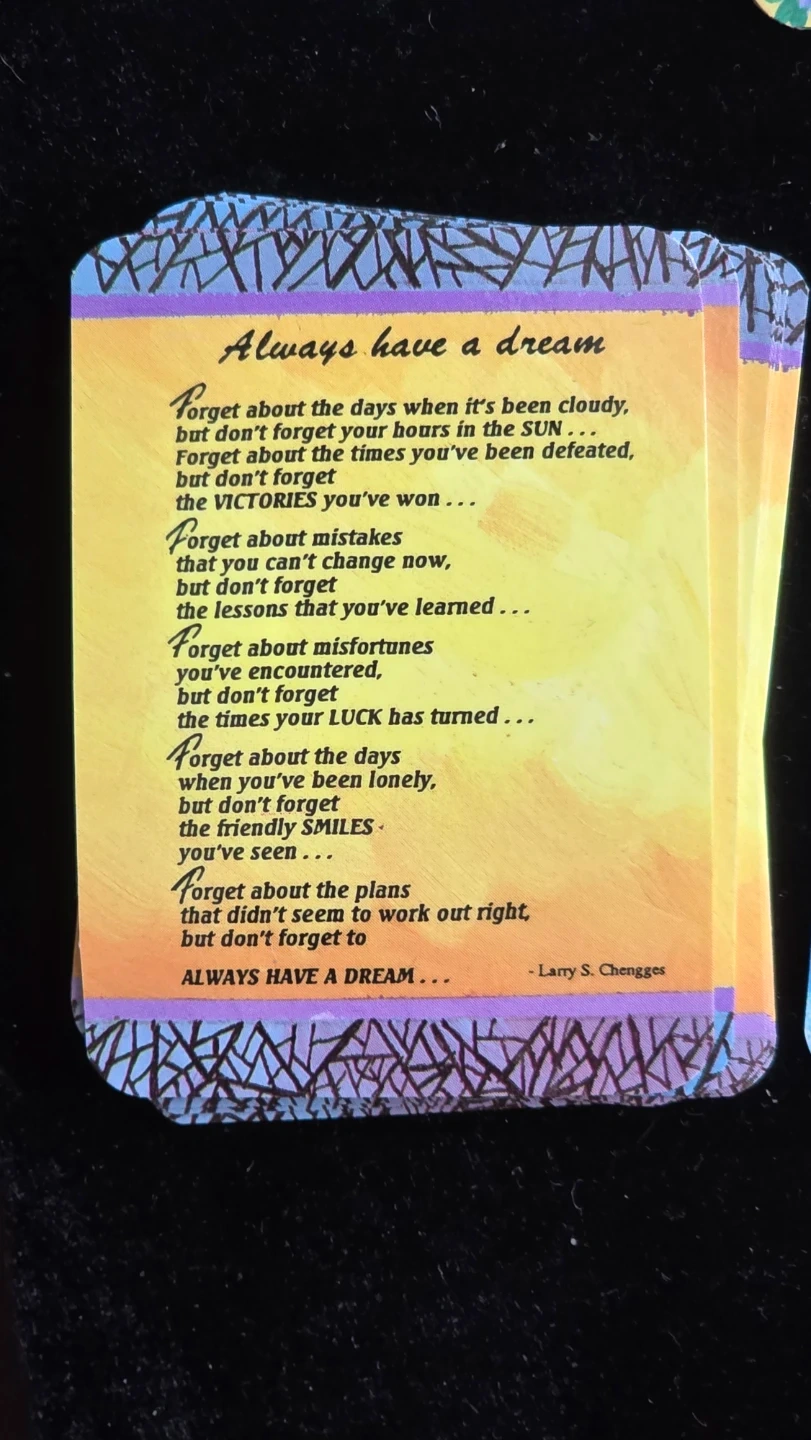 Always have a dream
Forget about the days when it's been cloudy,
but don't forget your hours in the SUN . . .
Forget about the times you've been defeated,
but don't forget
the VICTORIES you've won . . .
Forget about mistakes
that you can't change now,
but don't forget
the lessons that you've learned . . .
Forget about misfortunes
you've encountered,
but don't forget
the times your LUCK has turned . . .
Forget about the days
when you've been lonely,
but don't forget
the friendly SMILES
you've seen . . .
Forget about the plans
that didn't seem to work out right,
but don't forget to
ALWAYS HAVE A DREAM . . .
- Larry S. Chengges